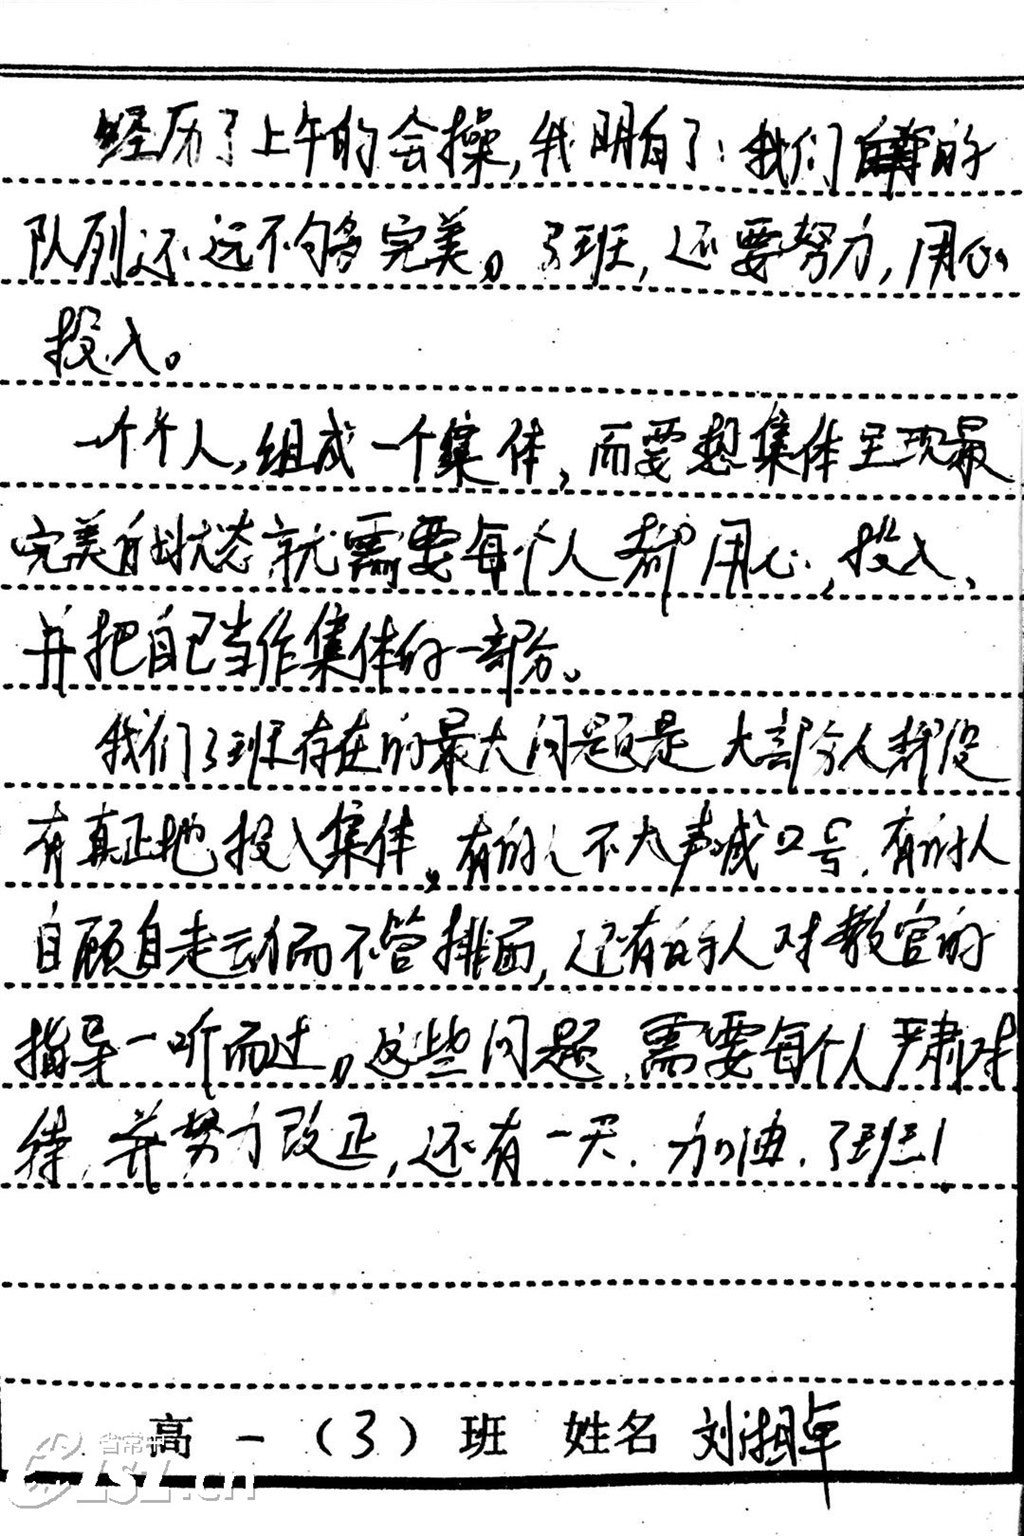 经历了上午的会操，我明白了：我们的
队列还远不够完美。3班，还要努力，用心
投入。
一个个人，组成一个集体，而要想集体呈现最
完美的状态就需要每个人都用心，投入，
并把自己当作集体的一部分。
我们3班存在的最大问题是大部分人都没
有真正地投入集体。有的人不大声喊口号，有的人
自顾自走动而不管排面，还有的人对教官的
指导一听而过。这些问题，需要每个人严肃对
待，并努力改正，还有一天，加油，3班！
高一（3）班 姓名 刘湘卓
省常中